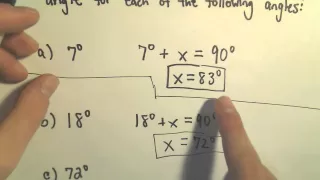 angle for each of the following angles:
a) 7° 7° + x = 90°
x = 83°
b) 18° 18° + x = 90°
x = 72°
c) 72°